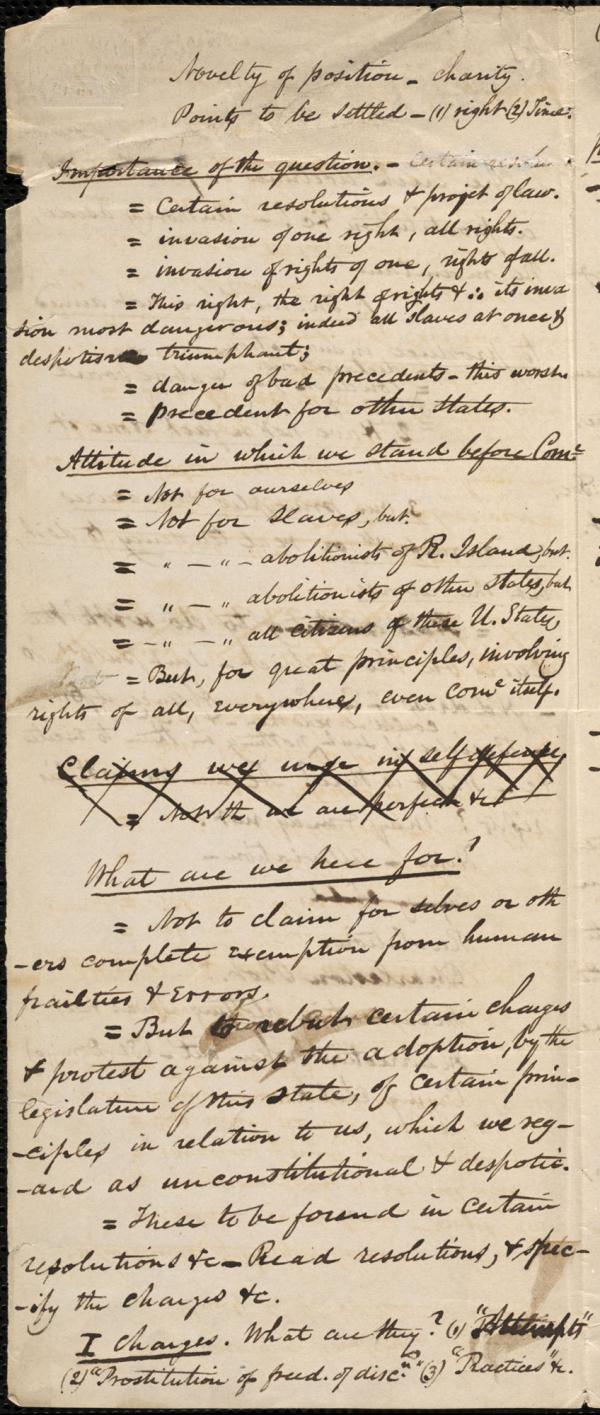 Novelty of position - charity.
Points to be settled - (1) right (2) Time.
Importance of the question. - Certain
= Certain resolutions & projet of law.
= invasion of one right, all rights.
= invasion of rights of one, rights of all.
= This right, the right of rights & ∴ its inva
sion most dangerous; indeed all slaves at once &
despotism triumphant;
= danger of bad precedents - this worst.
= precedent for other States.
Attitude in which we stand before Com.e
= Not for ourselves
= Not for slaves, but.
= " — " - abolitionists of R. Island, but.
= " — " abolitionists of other States, but
= - " — " all citizens of these U. States,
= But, for great principles, involving
rights of all, everywhere, even Com.e itself.
Claims we urge in self defence
= Not th we are perfect &c
What are we here for?
= Not to claim for selves or oth
-ers complete exemption from human
frailties & Errors.
= But to rebut certain charges
& protest against the adoption, by the
legislature of this State, of certain prin-
-ciples in relation to us, which we reg-
-ard as unconstitutional & despotic.
= These to be found in certain
resolutions &c - Read resolutions, & spec-
-ify the charges &c.
I charges. What are they? (1) "Attempts"
(2) "Prostitution of freed. of disc.n" (3) "Practices" &c.